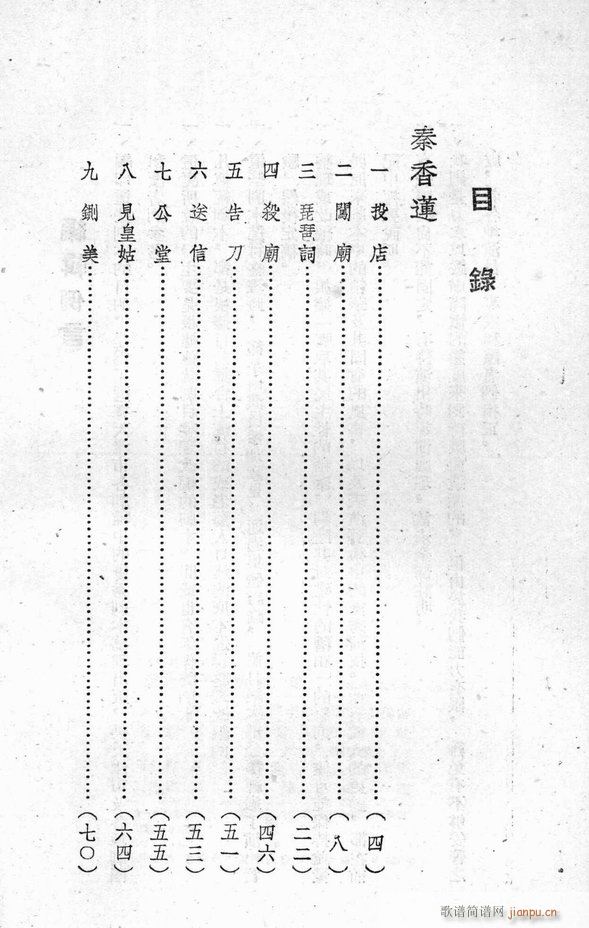 目錄
秦香蓮
一 投店……(四)
二 闖廟……(八)
三 琵琶詞……(二二)
四 殺廟……(四六)
五 告刀……(五一)
六 送信……(五三)
七 公堂……(五五)
八 見皇姑……(六四)
九 鍘美……(七〇)
歌谱简谱网
jianpu.cn